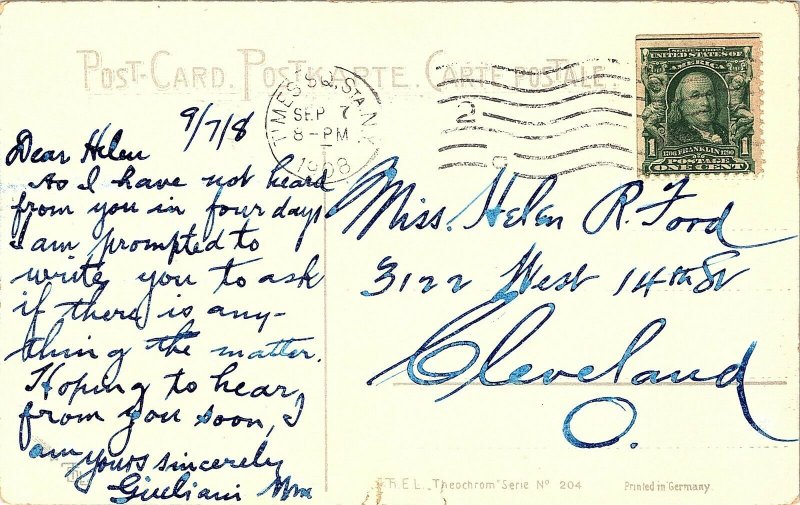 POST-CARD. POSTKARTE. CARTE POSTALE.
TIMES SQ. STA. N.Y.
SEP 7
8-PM
1908
2
SERIES 1902
UNITED STATES OF
AMERICA
1 FRANKLIN 1
POSTAGE
ONE CENT
9/7/8
Dear Helen
As I have not heard
from you in four days
I am prompted to
write you to ask
if there is any-
thing the matter.
Hoping to hear
from you soon, I
am yours sincerely
Giuliani
Miss. Helen R. Ford
3122 West 14th St
Cleveland
O.
"Theochrom" Serie No 204
Printed in Germany.